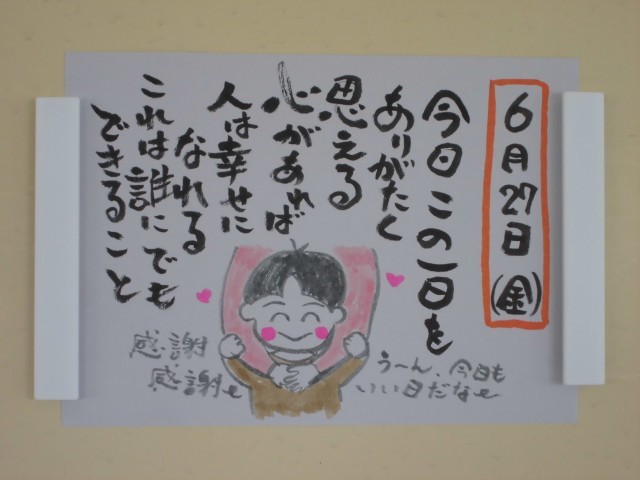 6月27日(金)
今日この一日を
ありがたく
思える
心があれば
人は幸せに
なれる
これは誰にでも
できること
感謝
感謝〜
うーん、今日も
いい日だな〜